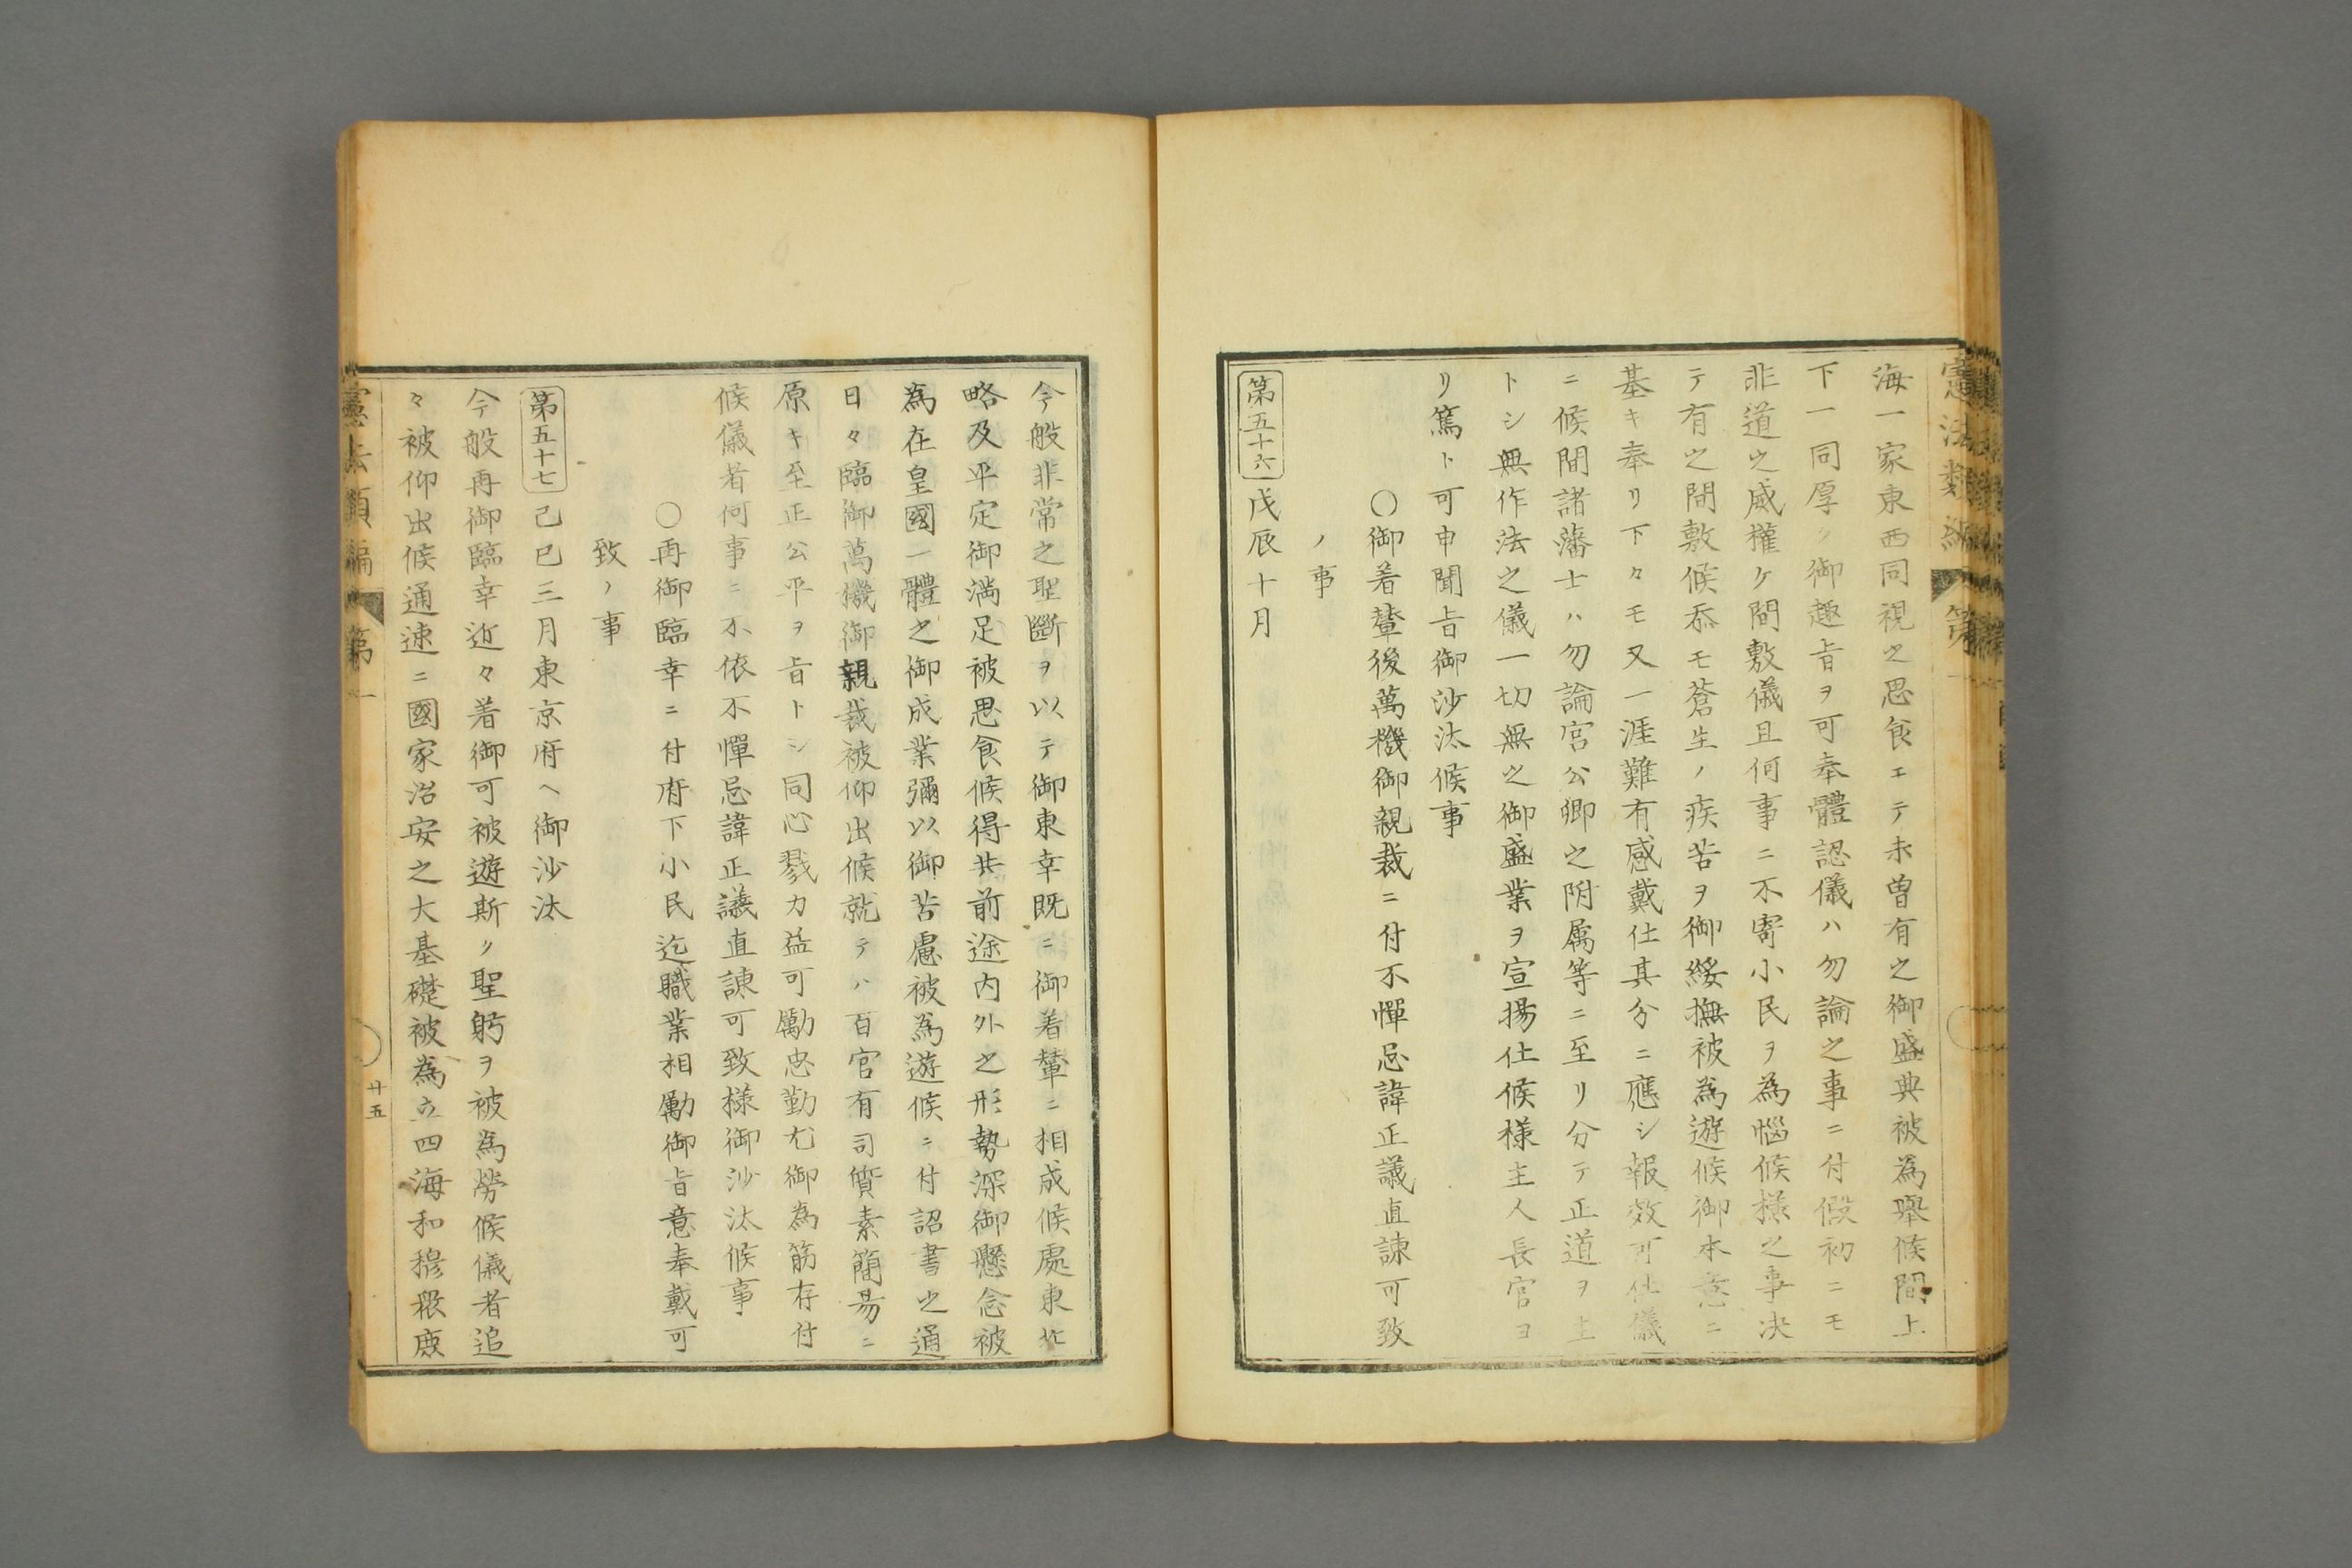 海一家東西同視之思食ニテ未曽有之御盛典被為舉候間上
下一同厚ク御趣旨ヲ可奉體認儀ハ勿論之事ニ付假初ニモ
非道之威權ケ間敷儀且何事ニ不寄小民ヲ為悩候様之事决
テ有之間敷候忝モ蒼生ノ疾苦ヲ御綏撫被為遊候御本意ニ
基キ奉リ下々モ又一涯難有感戴仕其分ニ應シ報效可仕儀
ニ候間諸藩士ハ勿論宮公卿之附属等ニ至リ分テ正道ヲ主
トシ無作法之儀一切無之御盛業ヲ宣揚仕候様主人長官ヨ
リ篤ト可申聞旨御沙汰候事
○御着輦後萬機御親裁ニ付不憚忌諱正議直諫可致
ノ事
第五十六 戊辰十月
今般非常之聖斷ヲ以テ御東幸既ニ御着輦ニ相成候處東北
略及平定御満足被思食候得共前途内外之形勢深御懸念被
為在皇國一體之御成業彌以御苦慮被為遊候ニ付詔書之通
日々臨御萬機御親裁被仰出候就テハ百官有司質素簡易ニ
原キ至正公平ヲ旨トシ同心戮力益可勵忠勤尤御為筋存付
候儀者何事ニ不依不憚忌諱正議直諫可致様御沙汰候事
○再御臨幸ニ付府下小民迄職業相勵御旨意奉戴可
致ノ事
第五十七 己巳三月東京府ヘ御沙汰
今般再御臨幸近々着御可被遊斯ク聖躬ヲ被為勞候儀者追
々被仰出候通速ニ國家治安之大基礎被為立四海和穆衆庶
憲法類編 第一
廿五